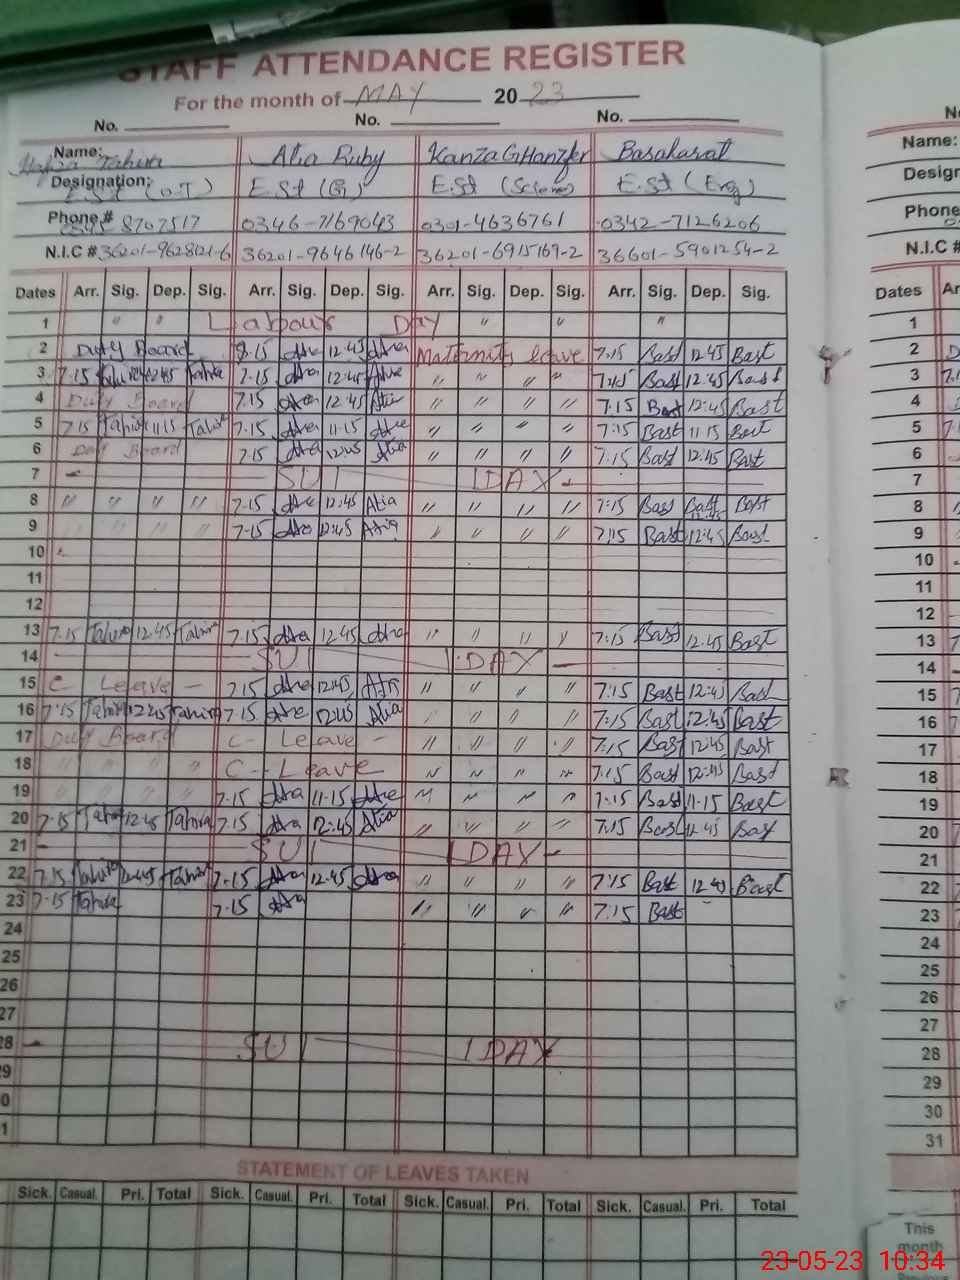 STAFF ATTENDANCE REGISTER
For the month of MAY 2023
No. No. No.
Name: Tahira Atia Ruby Kanza Basaharat
Designation: E.St (O.T) E.St (G) E.St (Science) E.St (Eng)
Phone # 8707517 0346-7169043 0301-4636761 0342-7126206
N.I.C # 36201-9628121-6 36201-9646146-2 36201-6915169-2 36601-5901254-2
Dates Arr. Sig. Dep. Sig. Arr. Sig. Dep. Sig. Arr. Sig. Dep. Sig. Arr. Sig. Dep. Sig.
1 " " Labour Day " " "
2 Duty Board 8.15 Atia 12:45 Atia Maternity leave 7:15 Bast 12:45 Bast
3 7:15 Tahira 12:45 Tahira 7-15 Atia 12:45 Atia " " " " 7:15 Bast 12:45 Bast
4 Duty Board 7.15 Atia 12:45 Atia " " " " 7:15 Bast 12:45 Bast
5 7:15 Tahira 11:15 Tahira 7-15 Atia 11-15 Atia " " " " 7:15 Bast 11:15 Bast
6 Duty Board 7.15 Atia 12:45 Atia " " " " 7:15 Bast 12:45 Bast
7 SUNDAY
8 " " " " 7-15 Atia 12:45 Atia " " " " 7:15 Bast Bast 12:45 Bast
9 " " " " 7-15 Atia 12:45 Atia " " " " 7:15 Bast 12:45 Bast
10
11
12
13 7:15 Tahira 12:45 Tahira 7-15 Atia 12:45 Atia " " " " 7:15 Bast 12:45 Bast
14 SUNDAY
15 C- Leave - 7.15 Atia 12:45 Atia " " " " 7:15 Bast 12:45 Bast
16 7:15 Tahira 12:45 Tahira 7-15 Atia 12:45 Atia " " " " 7:15 Bast 12:45 Bast
17 Duty Board C- Leave - " " " " 7:15 Bast 12:45 Bast
18 " " " " C- Leave " " " " 7:15 Bast 12:45 Bast
19 " " " " 7-15 Atia 11-15 Atia " " " " 7:15 Bast 11-15 Bast
20 7:15 Tahira 12:45 Tahira 7-15 Atia 12:45 Atia " " " " 7:15 Bast 12:45 Bast
21 SUNDAY
22 7:15 Tahira 12:45 Tahira 7-15 Atia 12:45 Atia " " " " 7:15 Bast 12:45 Bast
23 7-15 Tahira 7-15 Atia " " " " 7:15 Bast
24
25
26
27
28 SUNDAY
29
30
31
STATEMENT OF LEAVES TAKEN
Sick. Casual. Pri. Total Sick. Casual. Pri. Total Sick. Casual. Pri. Total Sick. Casual. Pri. Total
Name:
Phone
N.I.C #
Dates
1
2
3
4
5
6
7
8
9
10
11
12
13
14
15
16
17
18
19
20
21
22
23
24
25
26
27
28
29
30
31
This
month
23-05-23 10:34